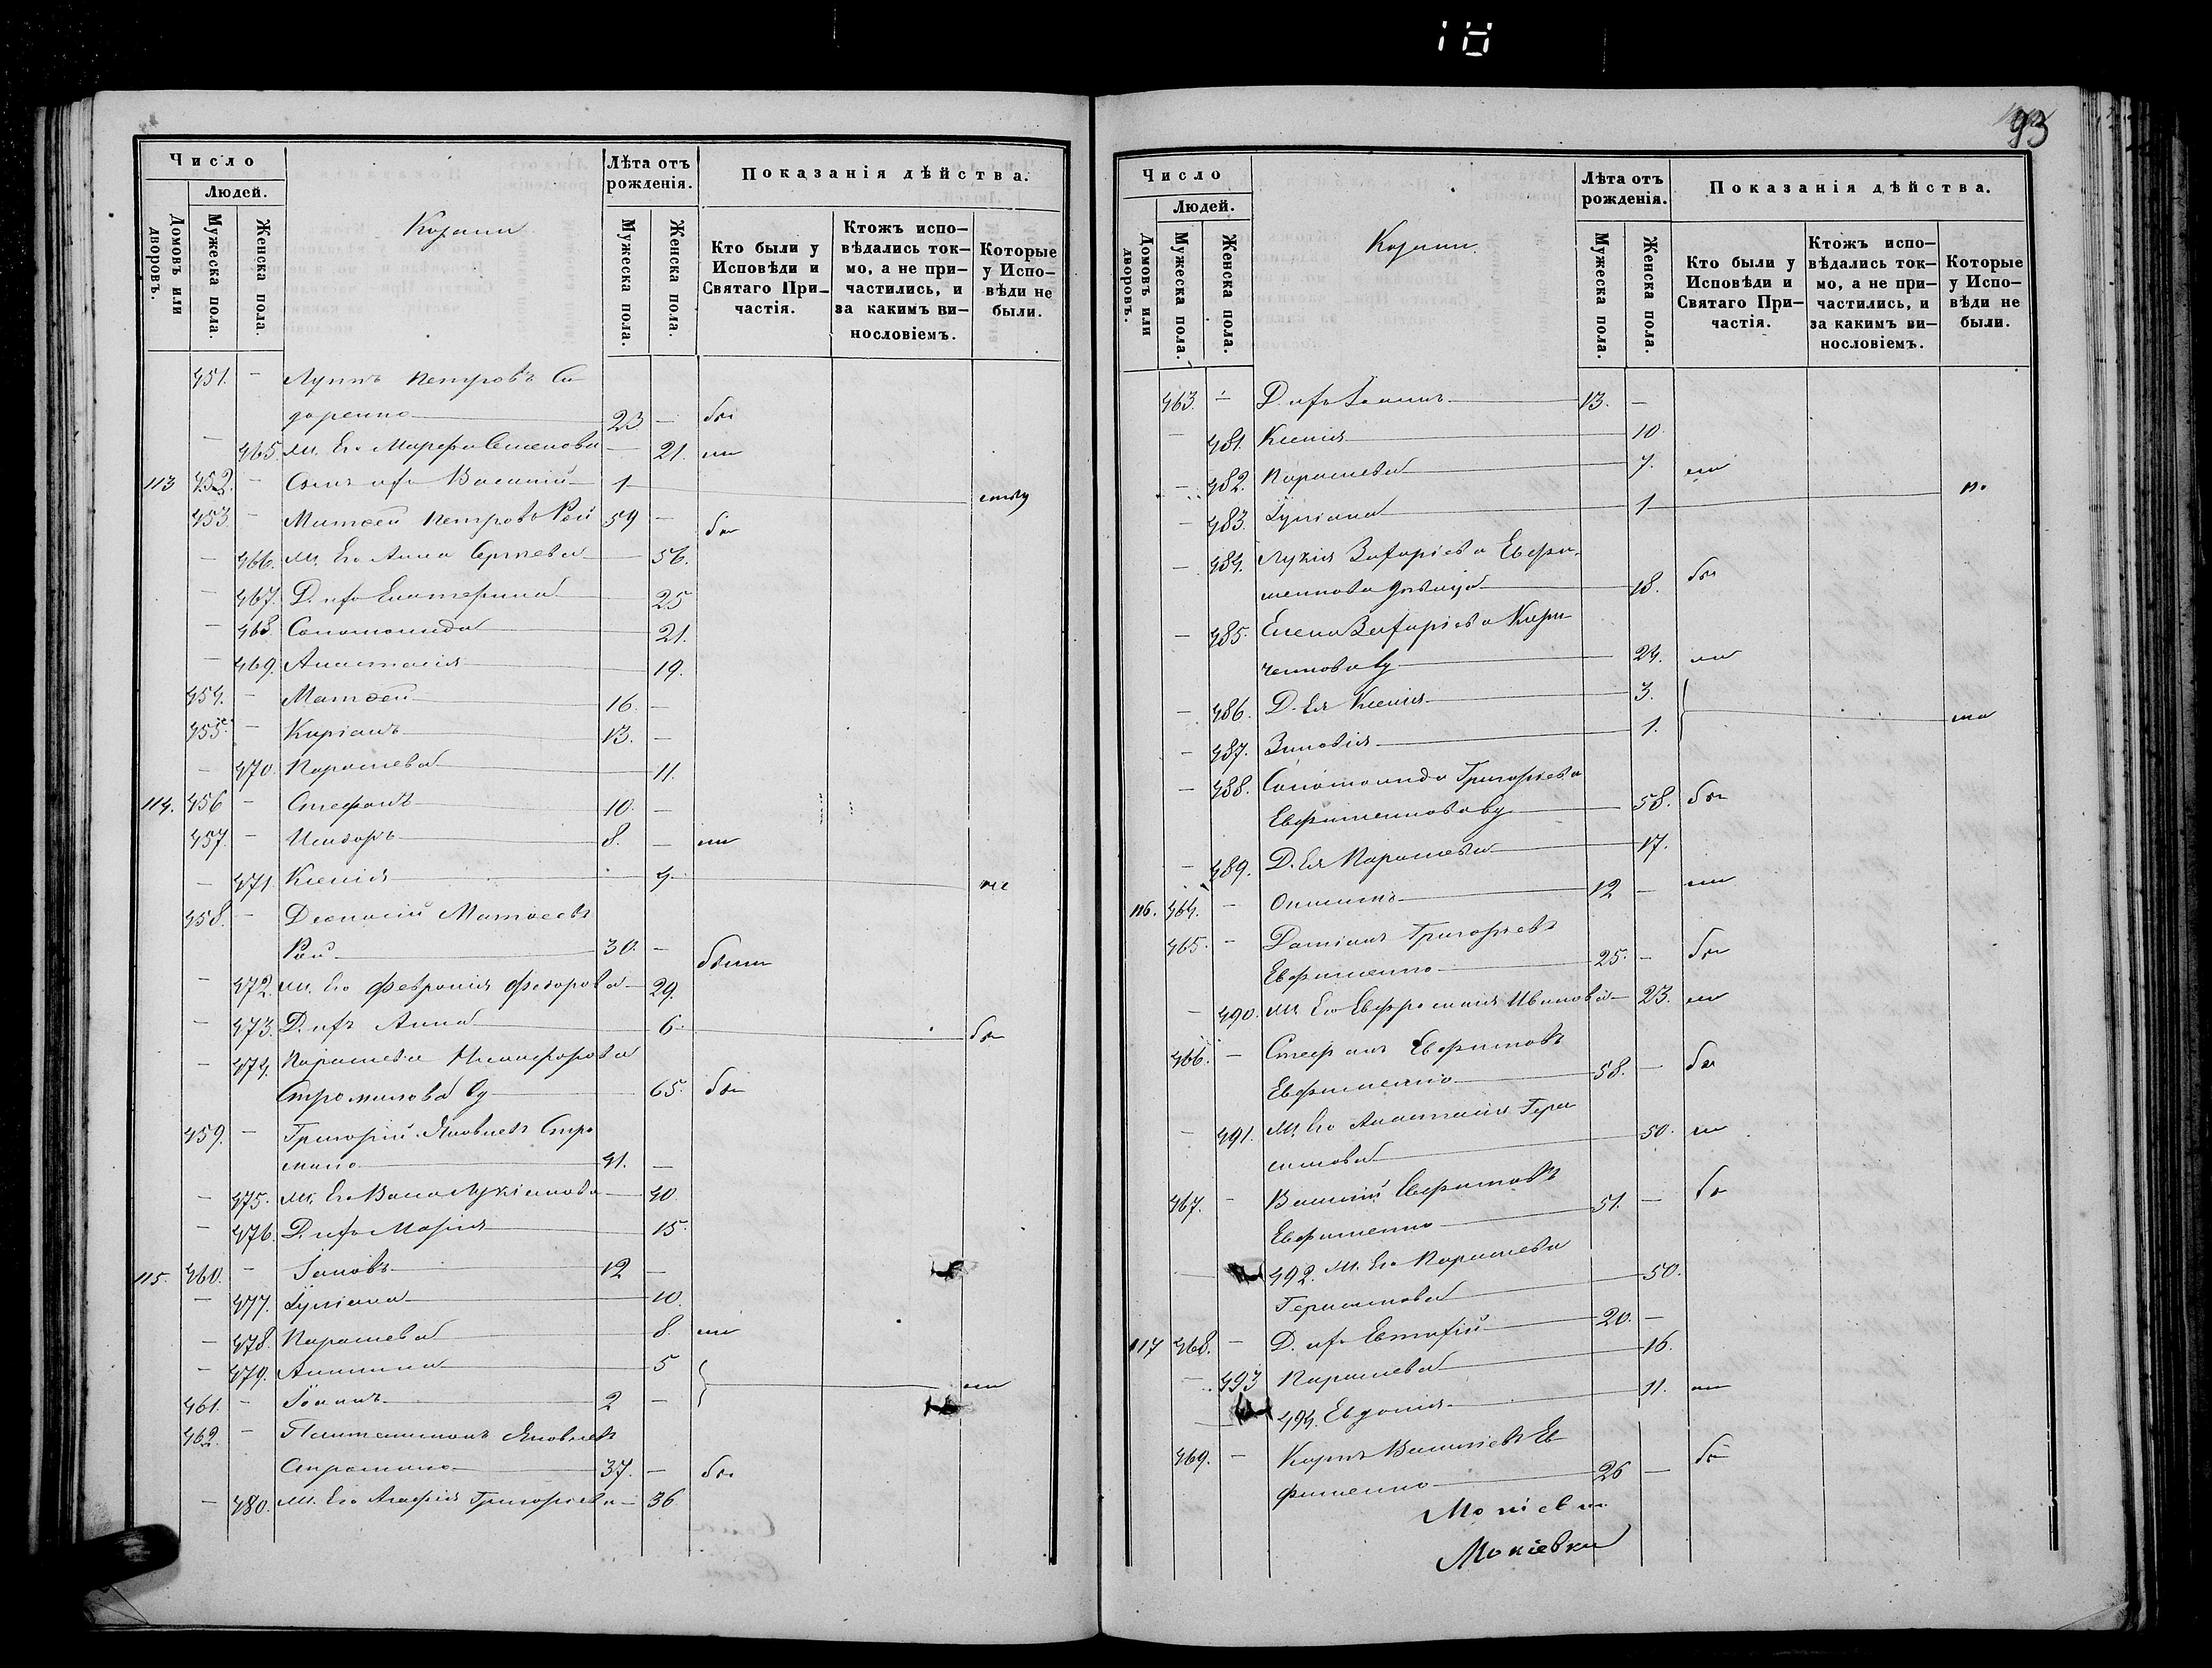 18
93
Число
Людей.
Домовъ или дворовъ.
Мужеска пола.
Женска пола.
Козаки
Лѣта отъ рожденія.
Мужеска пола.
Женска пола.
Показанія дѣйства.
Кто были у Исповѣди и Святаго Причастія.
Ктожъ исповѣдались токмо, а не причастились, и за какимъ винословіемъ.
Которые у Исповѣди не были.
451. — Луппъ Петровъ Си-
доренко 23 — бы
— 465. Ж. Его Марфа Семенова — 21. ли
113 452. — Сынъ ихъ Василій 1
453. — Матѳей Петровъ Рой 59 — бы
— 466. Ж. Его Анна Сергіева — 56.
— 467. Д. ихъ Екатерина 25
— 468. Соломонида 21.
— 469. Анастасія 19.
454. — Матѳей 16. —
455. — Кипріанъ 13. —
— 470. Параскева 11.
114. 456 — Стефанъ 10. —
457. — Исидоръ 8. — ли
— 471 Ксенія 4. не
458. — Діонисій Матѳеевъ
Рой 30. — были
— 472. Ж. Его Февронія Федорова — 29.
— 473. Д. ихъ Анна 6. бы
— 474. Параскева Никифорова
Стромилова вд 65. бы
459. — Григорій Яковлевъ Стро
мило 41. —
— 475. Ж. Его Васса Лукіянова — 40.
— 476. Д. ихъ Марія 15.
115. 460. — Іаковъ 12 —
— 477. Іуліана 10.
— 478. Параскева 8. ли
— 479. Акилина 5
461. — Іоаннъ 2 — ли
462. — Пантелимонъ Яковлевъ
Стромило 37. — бы
— 480. Ж. Его Агафія Григоріева — 36
Число
Людей.
Домовъ или дворовъ.
Мужеска пола.
Женска пола.
Козаки.
Лѣта отъ рожденія.
Мужеска пола.
Женска пола.
Показанія дѣйства.
Кто были у Исповѣди и Святаго Причастія.
Ктожъ исповѣдались токмо, а не причастились, и за какимъ винословіемъ.
Которые у Исповѣди не были.
463. — Д. ихъ Іоаннъ 13. —
— 481. Ксенія 10.
— 482. Параскева 7. ли
— 483. Іуліана 1
— 484. Лукія Захаріева Евфи-
менкова дѣвица 18. бы
— 485. Елена Захаріева Харь
ченкова вд 24. ли
— 486. Д. Ея Ксенія 3.
— 487. Зиновія 1. ли
— 488. Соломонида Григоріева
Евфименкова вд 58. бы
— 489. Д. Ея Параскева 17.
116. 464. — Онисимъ 12 — ли
465. — Даміанъ Григорьевъ
Евфименко 25. — бы
— 490. Ж. Его Евфросинія Иванова 23. ли
466. — Стефанъ Евфимовъ
Евфименко 58. — бы
— 491. Ж. Его Анастасія Гера
симова 50. ли
467. — Василій Евфимовъ
Евфименко 51. — бы
— 492. Ж. Его Параскева
Герасимова 50.
117 468. — Д. ихъ Евстафій 20. —
— 493 Параскева 16.
— 494. Евдокія 11. ли
469. — Карпъ Василіевъ Ев
фименко 26 — бы
Мокіевки
Мокіевки